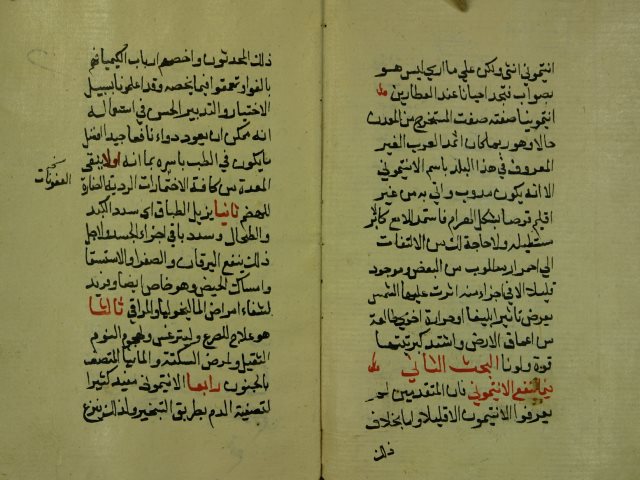 انتيموني انثى ولكن علي ما اري ليس هو
بصواب فتجد احيانا عند العطارين
انتيمونيا صفته صفت المستخرج من المعدن
حالا وهو ربما كان اثمد العرب الغير
المعروف في هذا البلد باسم الانتيموني
الا انه يكون مدوب واتي به من غير
اقليم
مستطيله ولا حاجة الي الالتفات
الي احمرار مطلوب من البعض وموجود
قليلا الا في اجزاء منه اثرت عليها الشمس
بعرض تأثيرا بليغا او حرارة اخري طالعة
من اعماق الارض واشتد كبرتيتها
قوة ولونا البحث الثاني
في منفع الانتيموني فان المتقدمين لم
يعرفوا الانتيمون الا قليلا واما بخلاف
ذلك
ذلك المحدثون واخصهم ارباب الكيميا فهم
بالغوا وتعمقوا فيما يخصه وقد اعلمونا بسبيل
الاختبار والتدبير الحسن في استعماله
انه ممكن ان يعود دواء نافعا جيد الفضل
ما يكون في الطب باسره بما انه اولا ينقي
المعدة من كافة الاختمارات الردية الضارة
للهضم ثانيا يزيل الطباق اي سدد الكبد
والطحال وسدد باقي اجزاء الجسد ولاجل
ذلك ينفع اليرقان والصفرا والاستسقا
وامساك الحيض وهو خاص ايضا ومفيد
لشفاء امراض الماليخوليا والمراقي ثالثا
هو علاج للصرع وليترغس وهجوم النوم
الثقيل ولمرض السكتة والمانيا المتصف
بالجنون رابعا الانتيموني مفيد كثيرا
لتصفية الدم بطريق التبخير ولذلك ينزع
العفونات